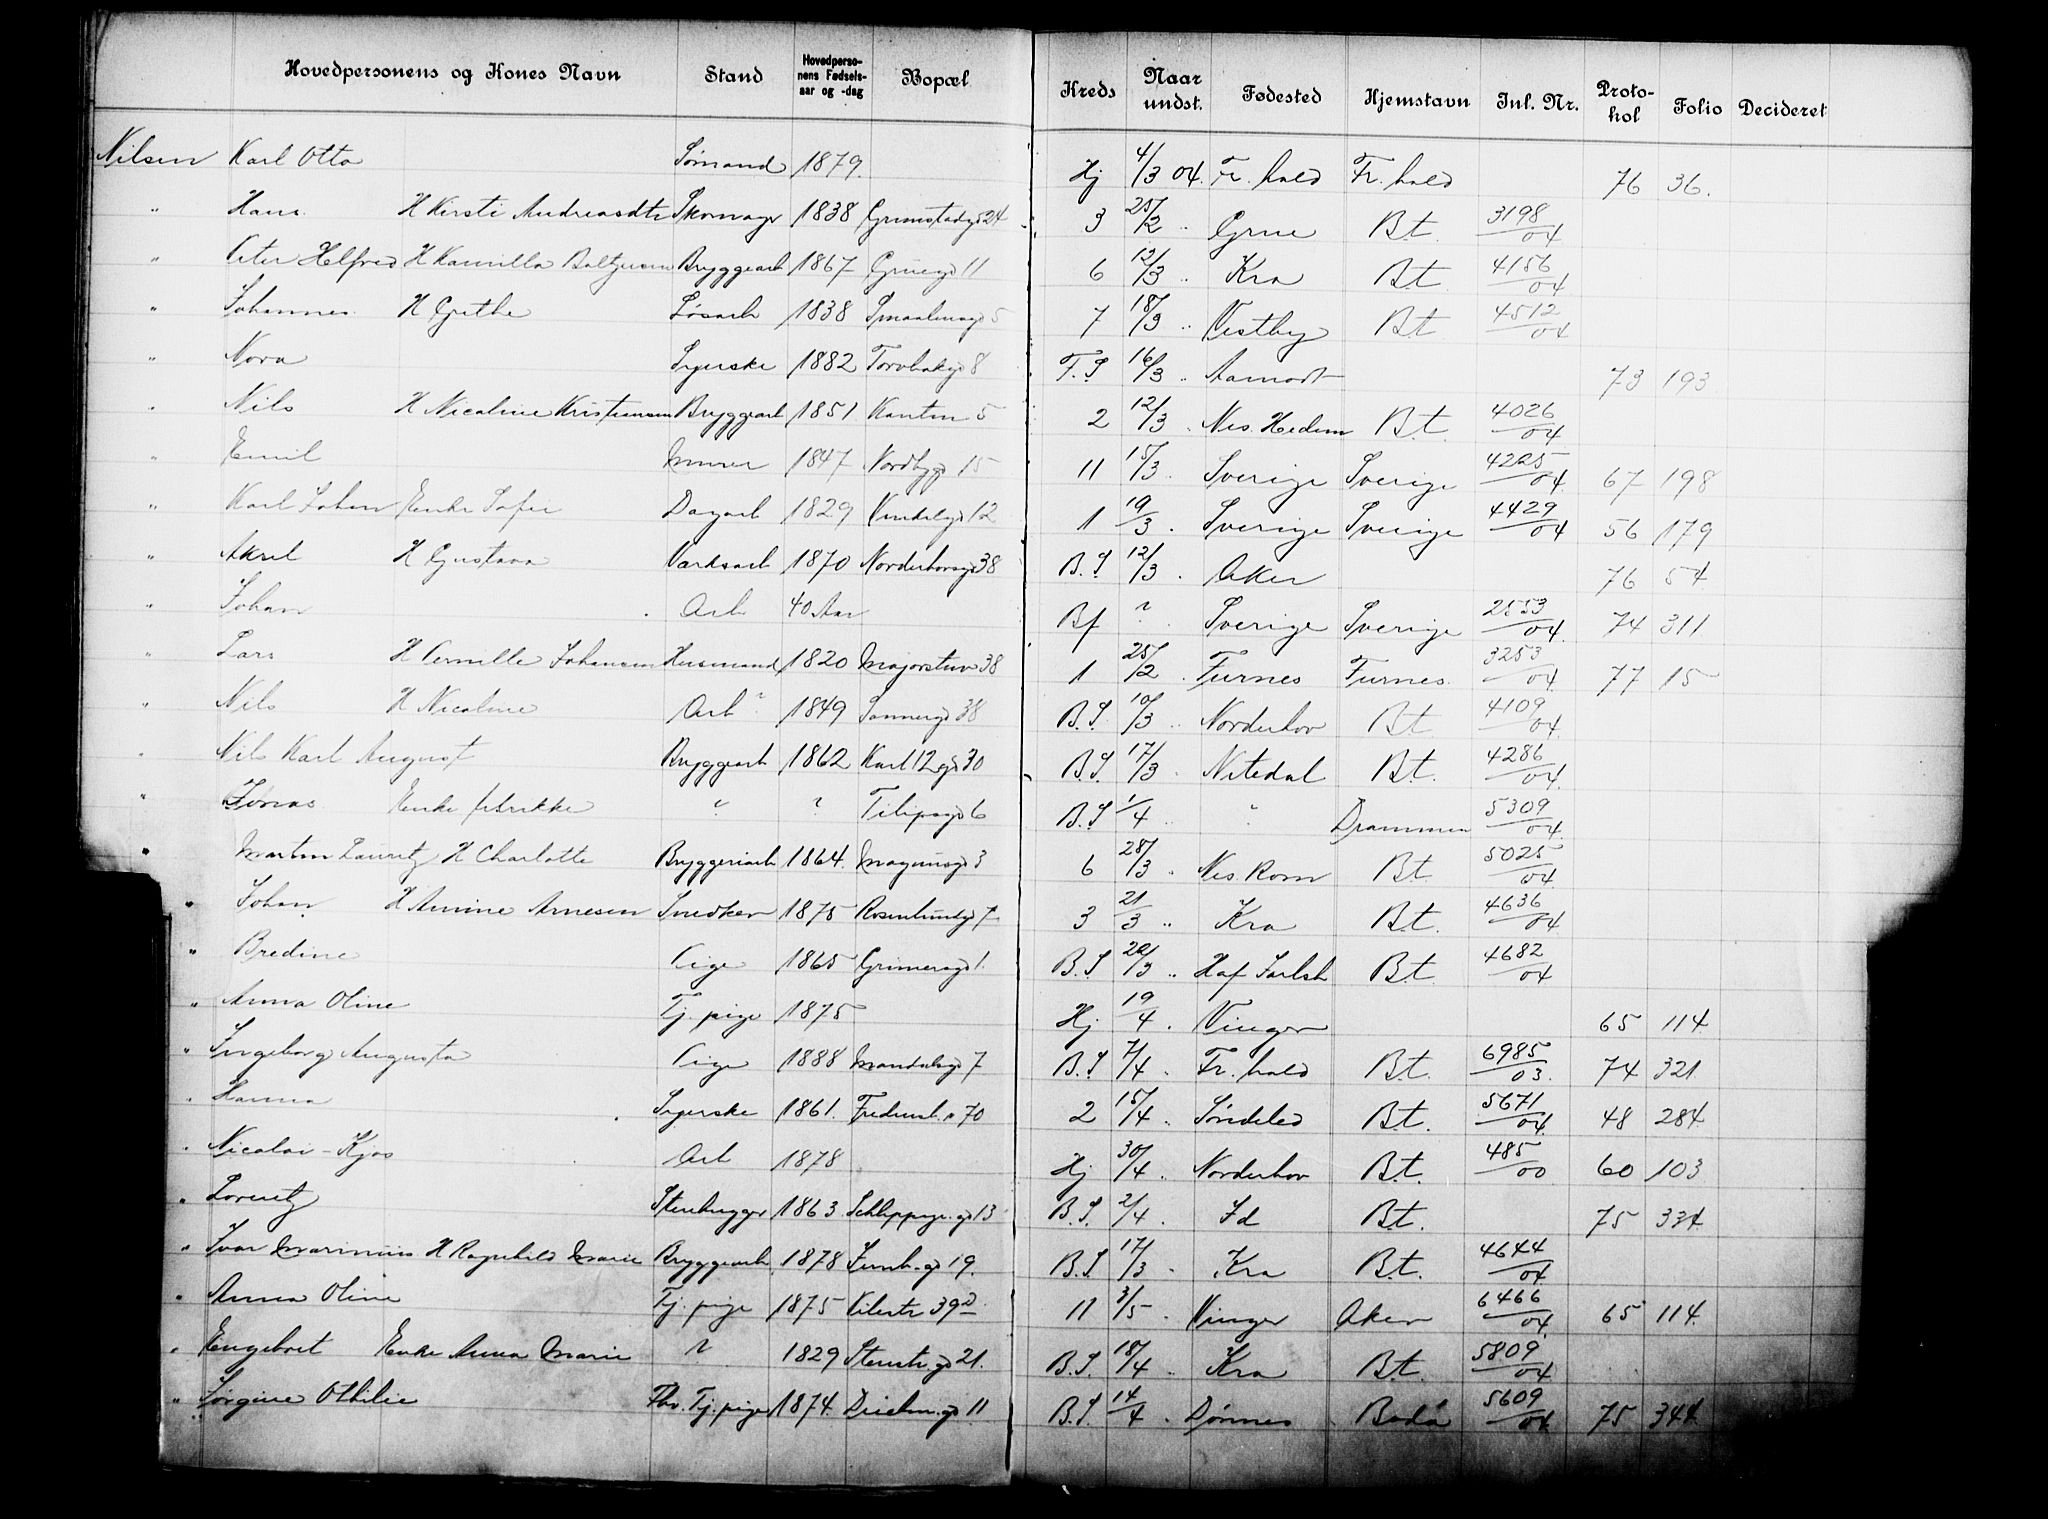 Hovedpersonens og Kones Navn Stand Hovedperso-nens Fødsels-aar og -dag Bopæl Kreds Naar undst. Fødested Hjemstavn Inl. Nr. Proto-kol Folio Decideret
Nilsen Karl Otto Sømand 1879. Hj 4/3 04. Fr. hald Fr. hald 76 36.
" Hans H Kirsti Andreasdtr Skomager 1838 Grimstadgd 24 3 25/2 " Grue B.t. 3198/04
" Peter Helfred H Kamilla Bryggearb 1867 Gruegd 11 6 12/3 " Kra Bt 4156/04
" Johannes H Grethe Løsarb 1838 Smaalensgd 5 7 18/3 " Vestby Bt 4512/04
" Nora Syerske 1882 Torvbakgd 8 F.S 16/3 " Aamodt 73 193
" Nils H Nicoline Kristiansen Bryggearb 1851. 5 2 12/3 " Nes. Hedem B.t. 4026/04
" Emil Murer 1847 Nordbygd 15 11 15/3 " Sverige Sverige 4225/04 67 198
" Karl Johan Enke Sofie Dagarb 1829 12 1 19/3 " Sverige Sverige 4429/04 56 179
" Aksel H Gustava Verksarb 1870 Norderhovsgd 38 B.S 12/3 " Aker 76 54
" Johan Arb 40 Aar Bf ? Sverige Sverige 2553/04 74 311
" Lars H Pernille Johansen Husmand 1820 Majorstuv 38 1 25/2 " Furnes Furnes 3253/04 77 15
" Nils H Nicoline Arb ? 1849 Sannergd 38 B.S. 10/3 " Norderhov Bt 4109/04
" Nils Karl August Bryggearb 1862 Karl 12 gd 30 B.S. 17/3 " Nitedal Bt. 4286/04
" Jonas Enke ? ? Filipsgd 6 B.S 1/4 " " Drammen 5309/04
" Martin Lauritz H Charlotte Bryggeriarb 1864. Magnusgd 3 6 28/3 " Nes. Rom Bt 5025/04
" Johan H Amine Arnesen Snedker 1875 Rosenlundgd 7 3 21/3 " Kra Bt. 4636/04
" Bredine Pige 1865 Grimersgd 1. B.S /3 " Haf Jarlsb Bt 4682/04
" Anna Oline Tj. pige 1875 Hj 19/4 " Vinger 65 114
" Ingeborg Augusta Pige 1888 Mandalsgd 7 B.S 7/4 " Fr. hald Bt. 6985/03. 74 321
" Hanna Syerske 1861. Fredensb. v 70 2 15/4 " Søndeled Bt. 5671/04 48 284
" Nicolai - Kjos Arb 1878 Hj 30/4 " Norderhov B.t. 485/00 60 103
" Lorentz Stenhugger 1863 Schleppegr. gd 13 B.S. 2/4 " Id Bt. 75 334
" Ivar Marinius H Ragnhild Marie Bryggearb 1878 gd 19. B.S. 17/3 " Kra Bt. 4644/04
" Anna Oline Tj. pige 1875 Pilestr 39 11 3/5 " Vinger Aker 6466/04. 65 114
" Engebret Enke Anna Marie ? 1829 Stenstr. gd 21. B.S. 18/4 " Kra Bt. 5809/04
" Jørgine Othilie Fhv. Tj. pige 1874. Deichm. gd 11 B.S. 14/4 " Dønnes Bodø 5609/04 75 344